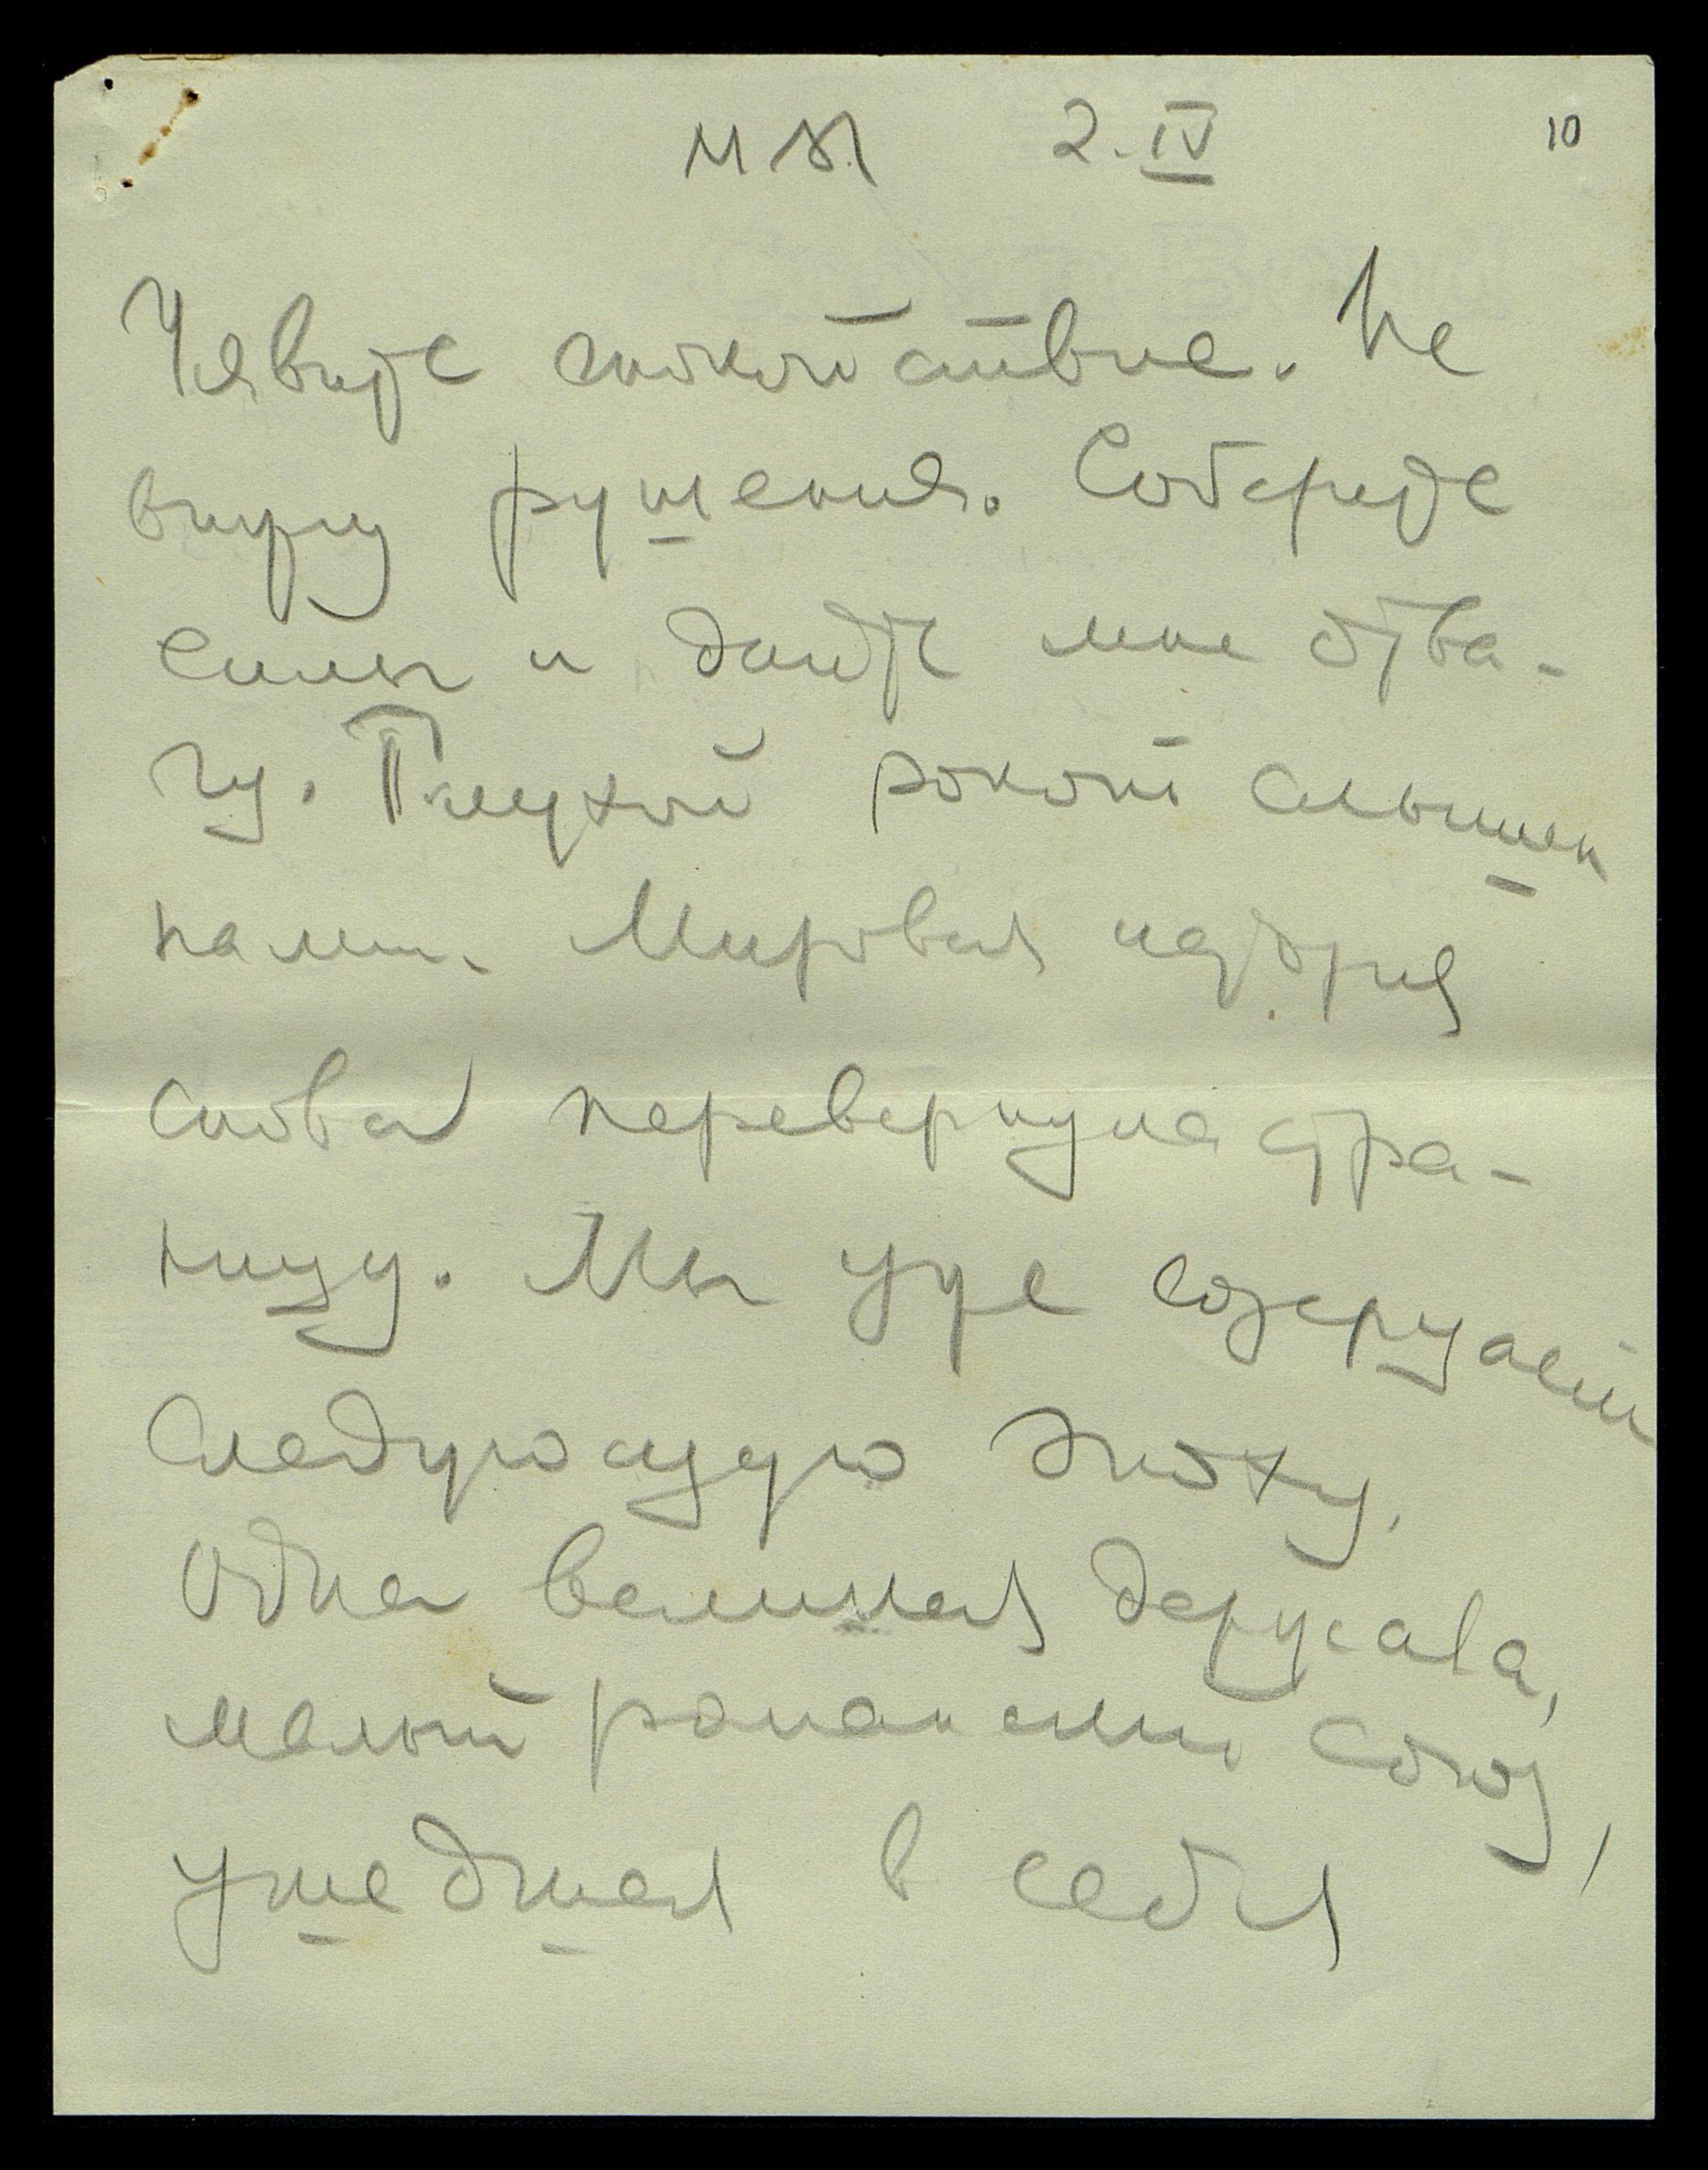 МЯ 2.IV 10
Явите спокойствие. Не
вижу рушения. Соберите
силы и дайте мне отва-
гу. Глухой рокот слышен
нами. Мировая история
снова перевернула стра-
ницу. Мы уже созерцаем
следующую эпоху.
Одна великая держава,
малый романский союз,
ушедшая в себя